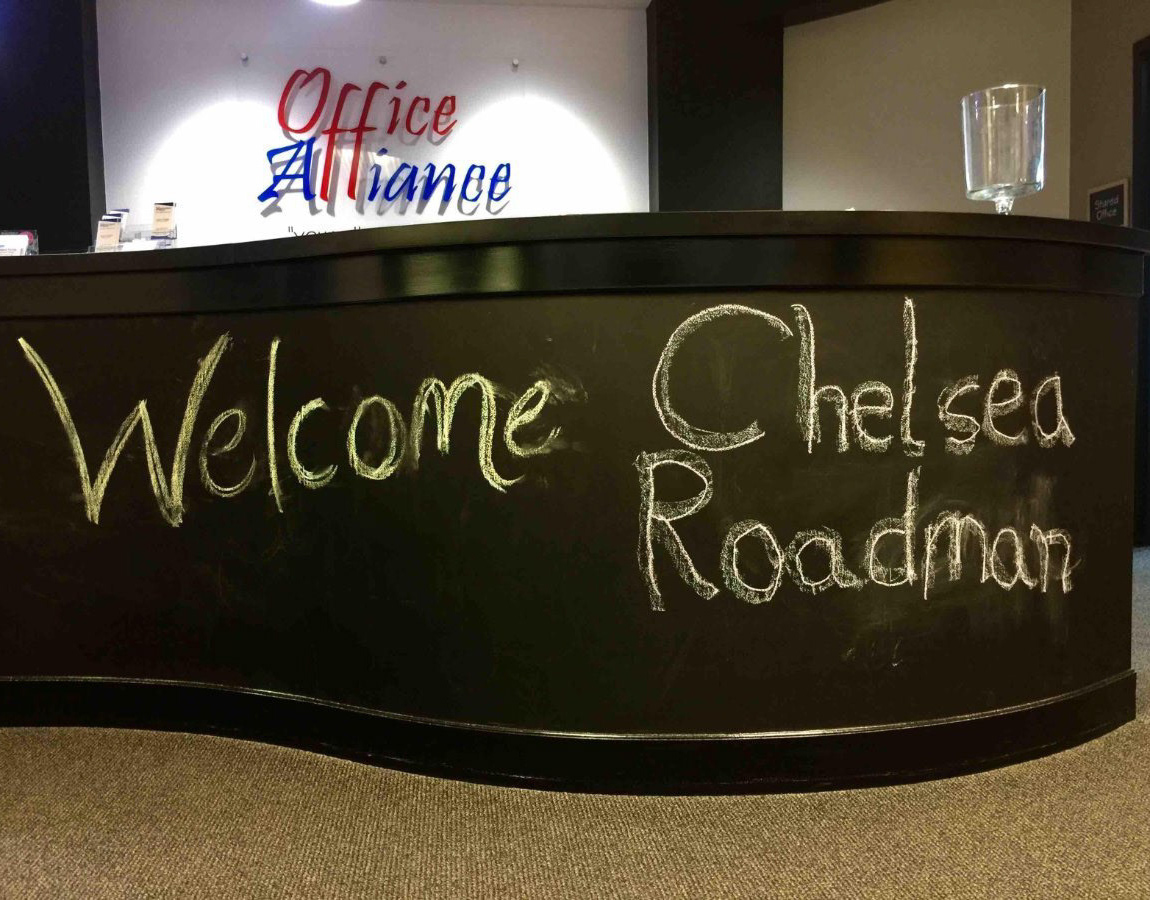 Office
Alliance
Shared
Office
Welcome
Chelsea
Roadman